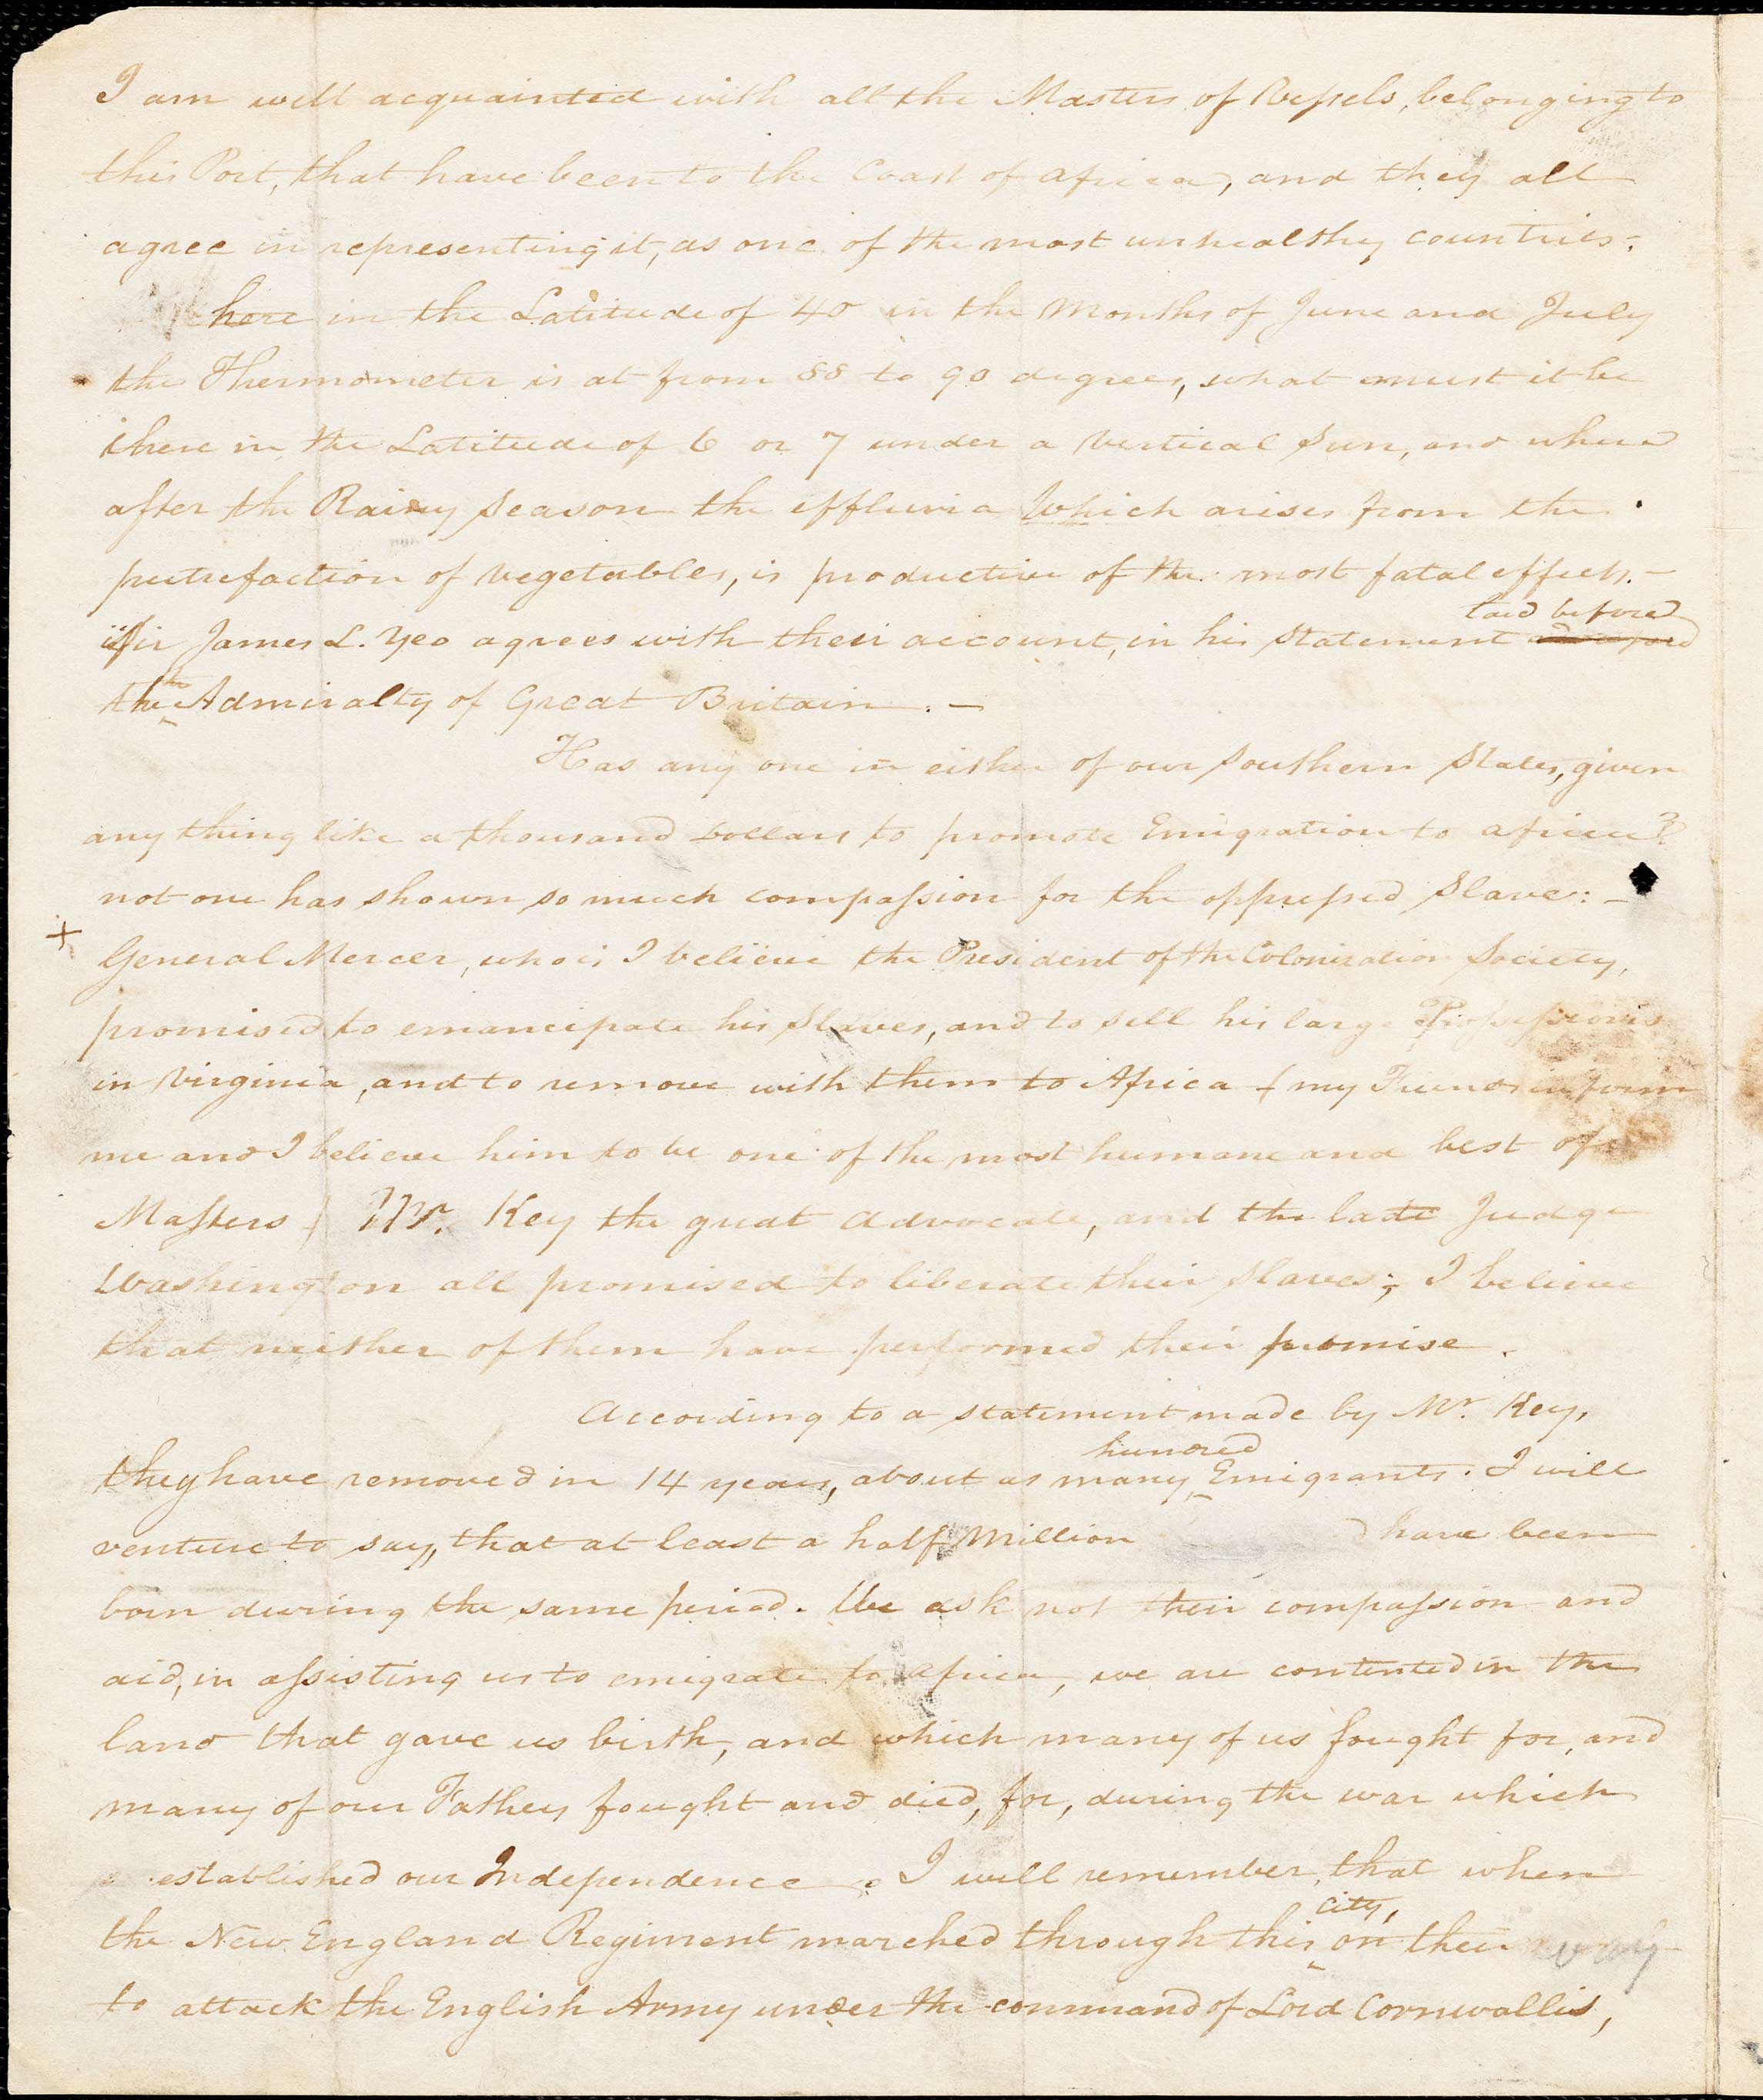 I am well acquainted with all the Masters of Vessels, belonging to
this Port, that have been to the Coast of africa, and they all
agree in representing it, as one of the most unhealthy countries.
here in the Latitude of 40 in the Months of June and July
the Thermometer is at from 88 to 90 degrees, what must it be
there in the Latitude of 6 or 7 under a vertical Sun, and where
after the Rainy Season the effluvia which arises from the
putrefaction of vegetables, is productive of the most fatal effects. —
Sir James L. Yeo agrees with their account, in his statement laid before
the Admiralty of Great Britain. —
Has any one in either of our Southern States, given
any thing like a thousand Dollars to promote Emigration to africa?
not one has shown so much compassion for the oppressed Slave: —
+ General Mercer, who is I believe the President of the Colonization Society,
promised to emancipate his Slaves, and to sell his large Possessions
in Virginia, and to remove with them to Africa ( my Friends inform
me and I believe him to be one of the most humane and best of
Masters ) Mr. Key the great advocate, and the late Judge
Washington all promised to liberate their slaves; I believe
that neither of them have performed their promise.
According to a statement made by Mr. Key,
they have removed in 14 years, about as many hundred Emigrants. I will
venture to say, that at least a half Million have been
born during the same period. We ask not their compassion and
aid, in assisting us to emigrate to africa, we are contented in the
land that gave us birth, and which many of us fought for, and
many of our Fathers fought and died, for, during the war which
established our Independence. I well remember, that when
the New England Regiment marched through this city, on their way
to attack the English Army under the command of Lord Cornwallis,